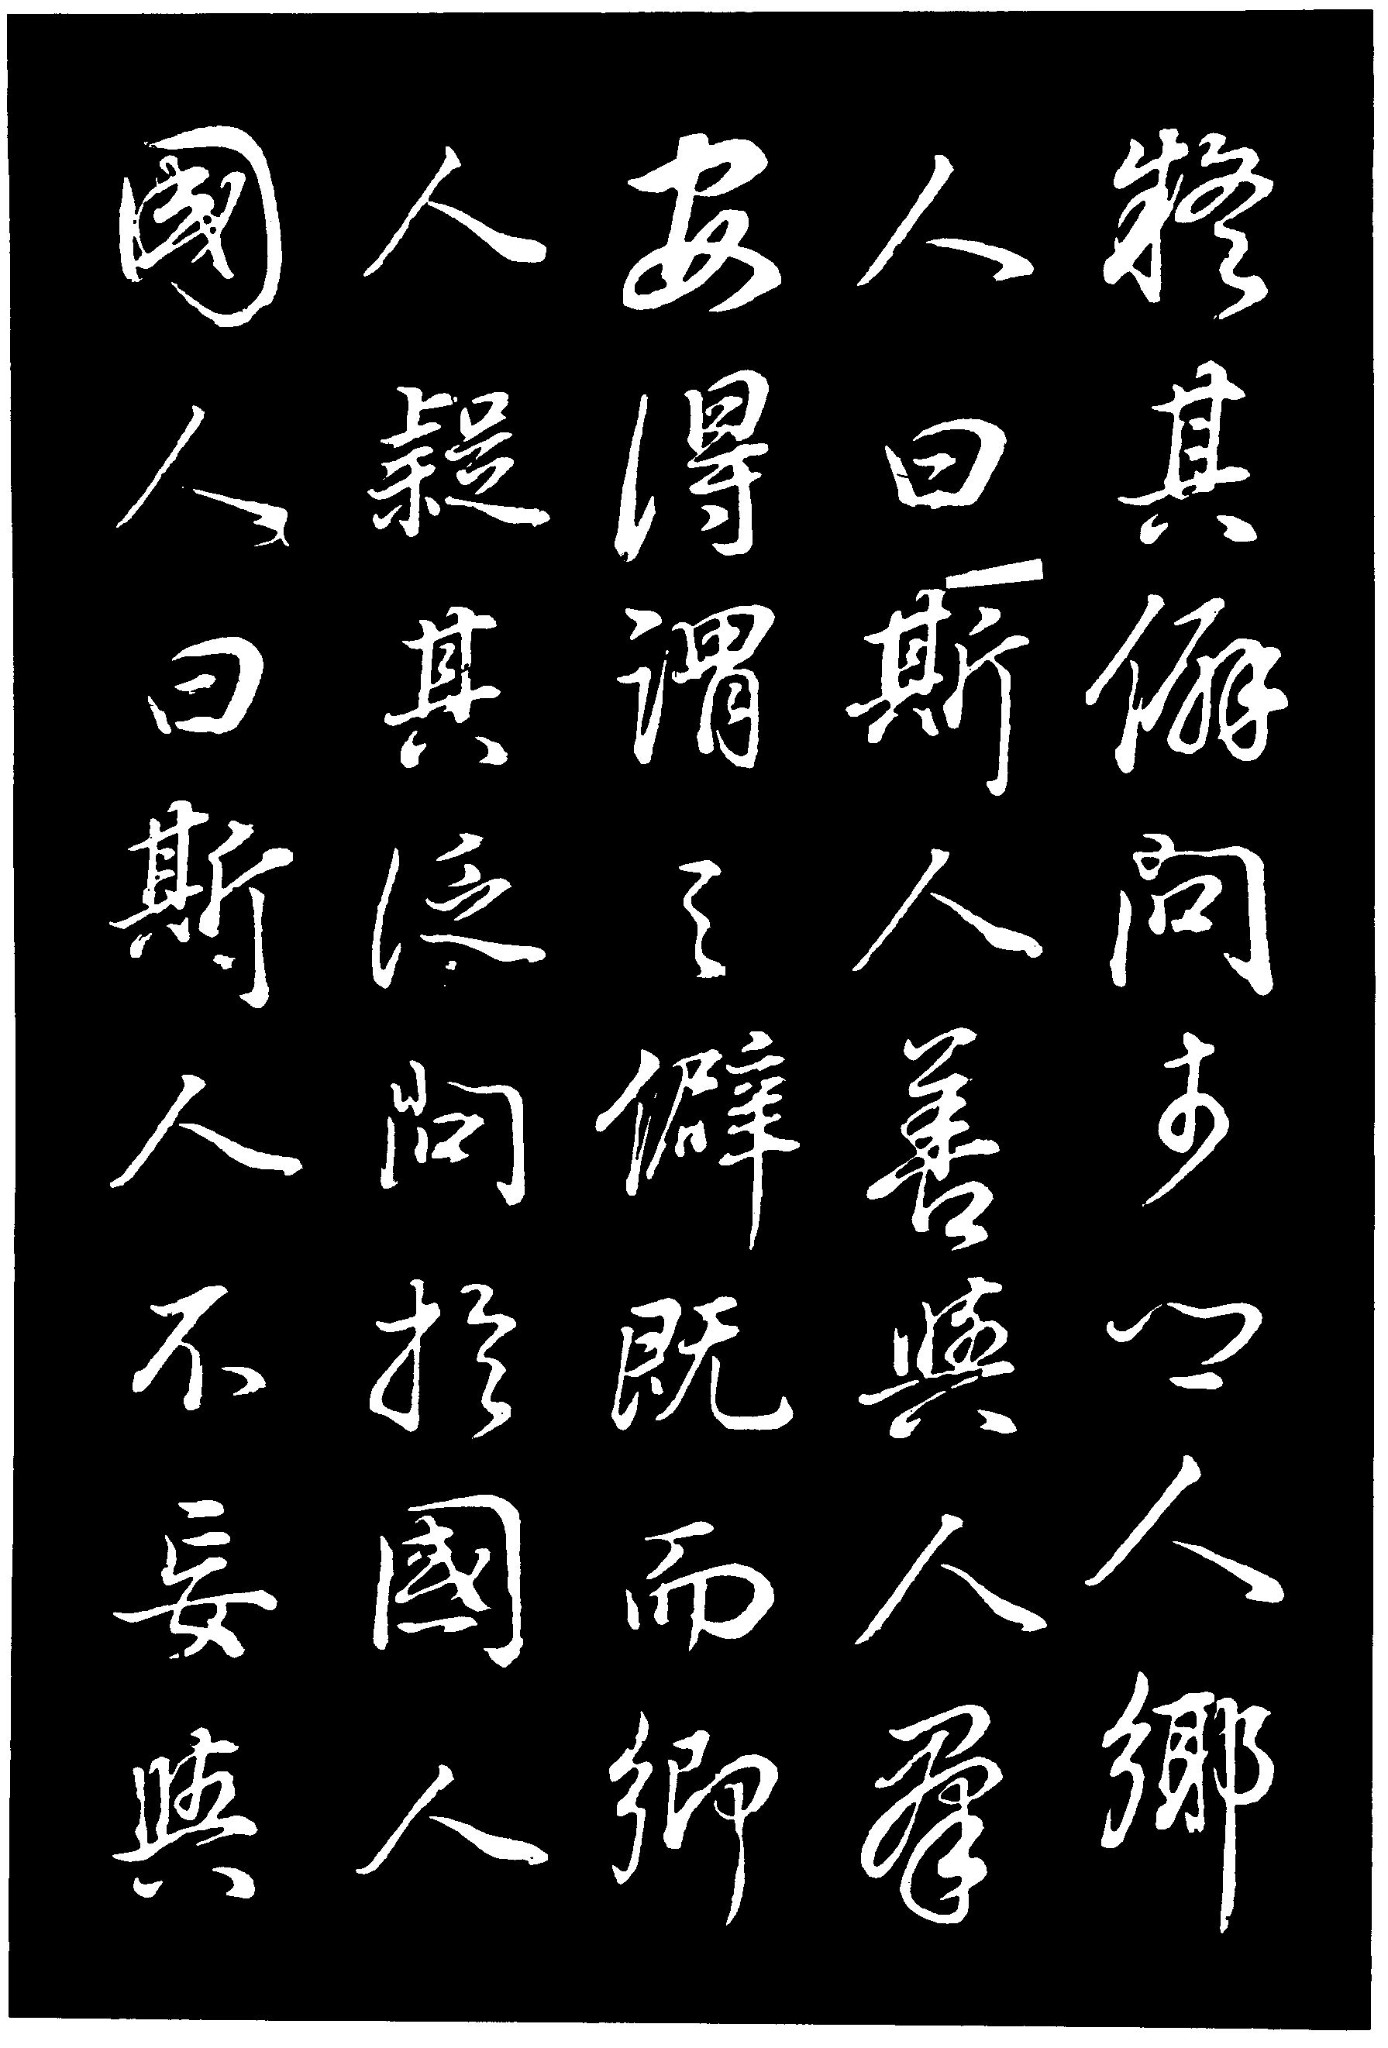 疑其僻問於鄉人鄉
人曰斯人善與人群
安得謂之僻既而鄉
人疑其泛問於國人
國人曰斯人不妄與